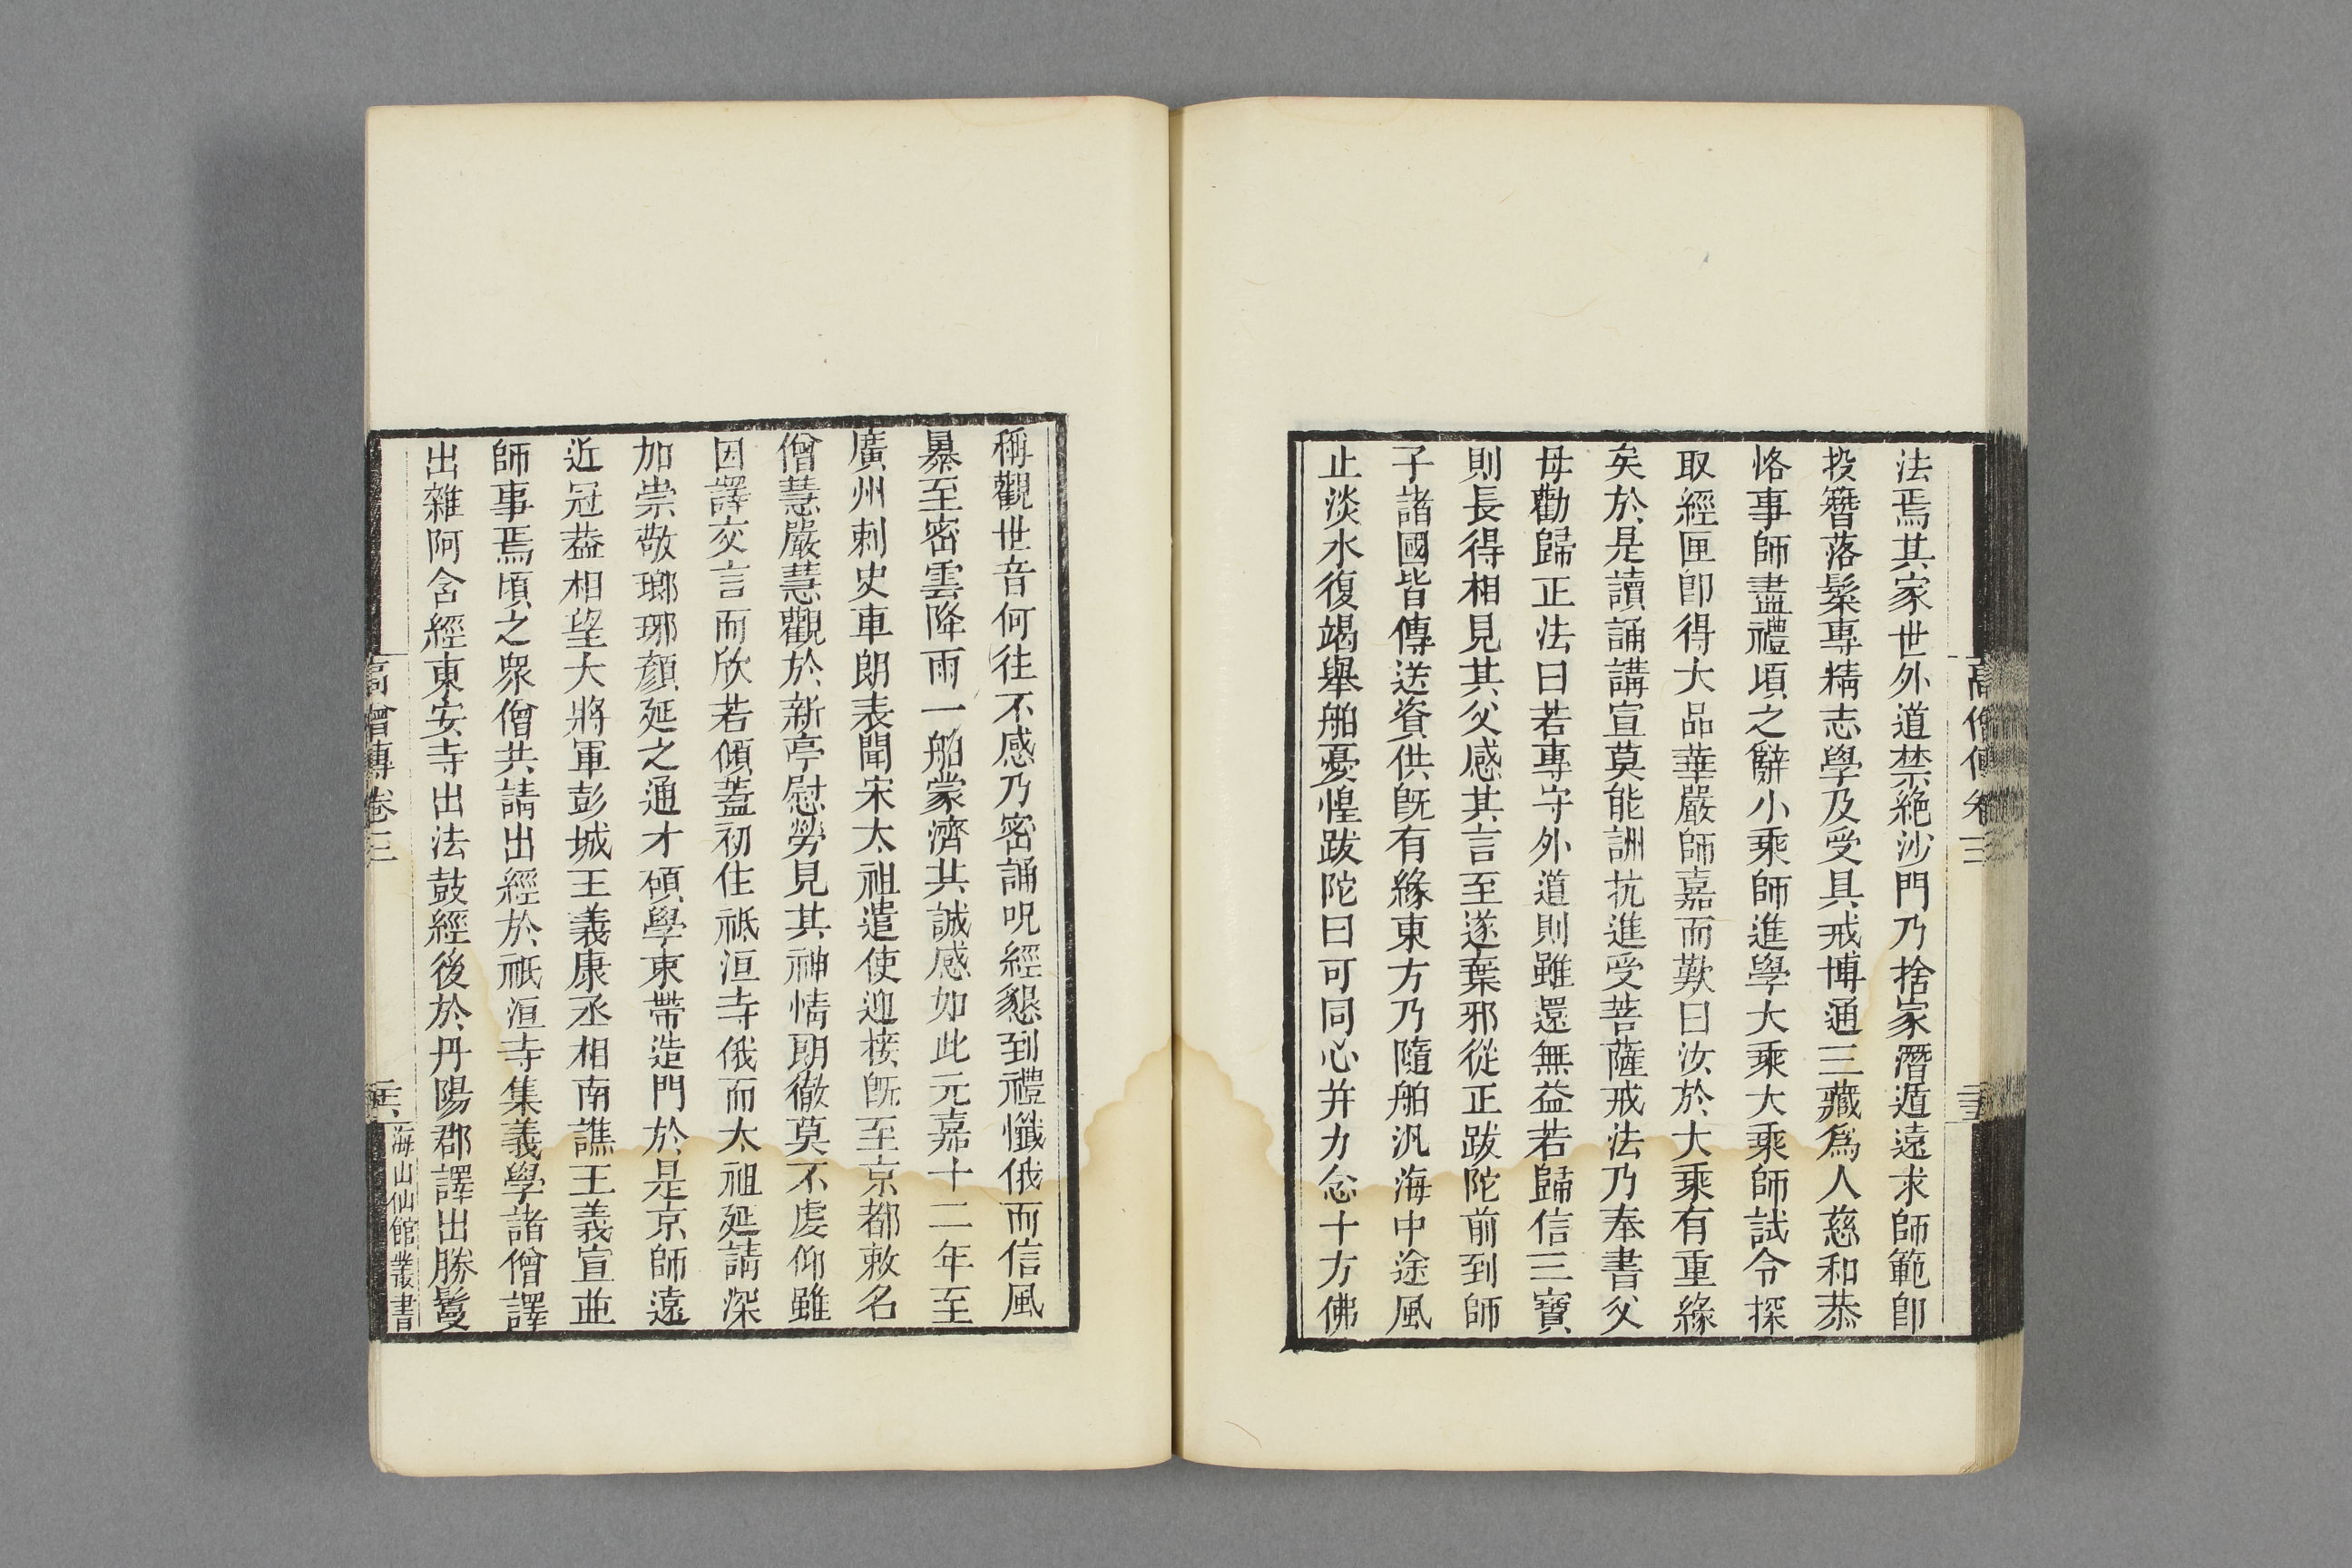 法焉其家世外道禁絕沙門乃捨家潛遁遠求師範卽
投簪落髮專精志學及受具戒博通三藏爲人慈和恭
恪事師盡禮頃之辭小乘師進學大乘大乘師試令探
取經匣卽得大品華嚴師嘉而歎曰汝於大乘有重緣
矣於是讀誦講宣莫能詶抗進受菩薩戒法乃奉書父
母勸歸正法曰若專守外道則雖還無益若歸信三寶
則長得相見其父感其言至遂棄邪從正跋陀前到師
子諸國皆傳送資供旣有緣東方乃隨舶汎海中途風
止淡水復竭舉舶憂惶跋陀曰可同心并力念十方佛
稱觀世音何往不感乃密誦呪經懇到禮懺俄而信風
暴至密雲降雨一舶蒙濟其誠感如此元嘉十二年至
廣州刺史車朗表聞宋太祖遣使迎接旣至京都敕名
僧慧嚴慧觀於新亭慰勞見其神情朗徹莫不虔仰雖
因譯交言而欣若傾蓋初住祇洹寺俄而太祖延請深
加崇敬瑯琊顏延之通才碩學束帶造門於是京師遠
近冠葢相望大將軍彭城王義康丞相南譙王義宣並
師事焉頃之衆僧共請出經於祇洹寺集義學諸僧譯
出雜阿含經東安寺出法鼓經後於丹陽郡譯出勝鬘
高僧傳卷三
海山仙館叢書